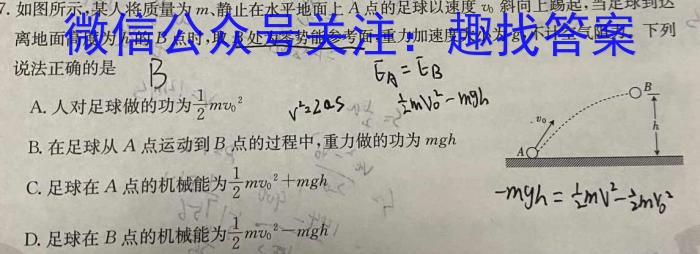 7. 如图所示,某人将质量为m、静止在水平地面上A点的足球以速度v₀斜向上踢起,当足球到达
离地面高度为h的B点时,取B处为零势能参考面,重力加速度 下列
微信公众号关注:趣找答案
说法正确的是
B
E_A = E_B
A. 人对足球做的功为\frac{1}{2}mv₀²
v²=2as
½mv₀²-mgh
B. 在足球从A点运动到B点的过程中,重力做的功为mgh
C. 足球在A点的机械能为\frac{1}{2}mv₀²+mgh
D. 足球在B点的机械能为\frac{1}{2}mv₀²-mgh
B
v₀
h
A
-mgh=½mv²-½mv₀²